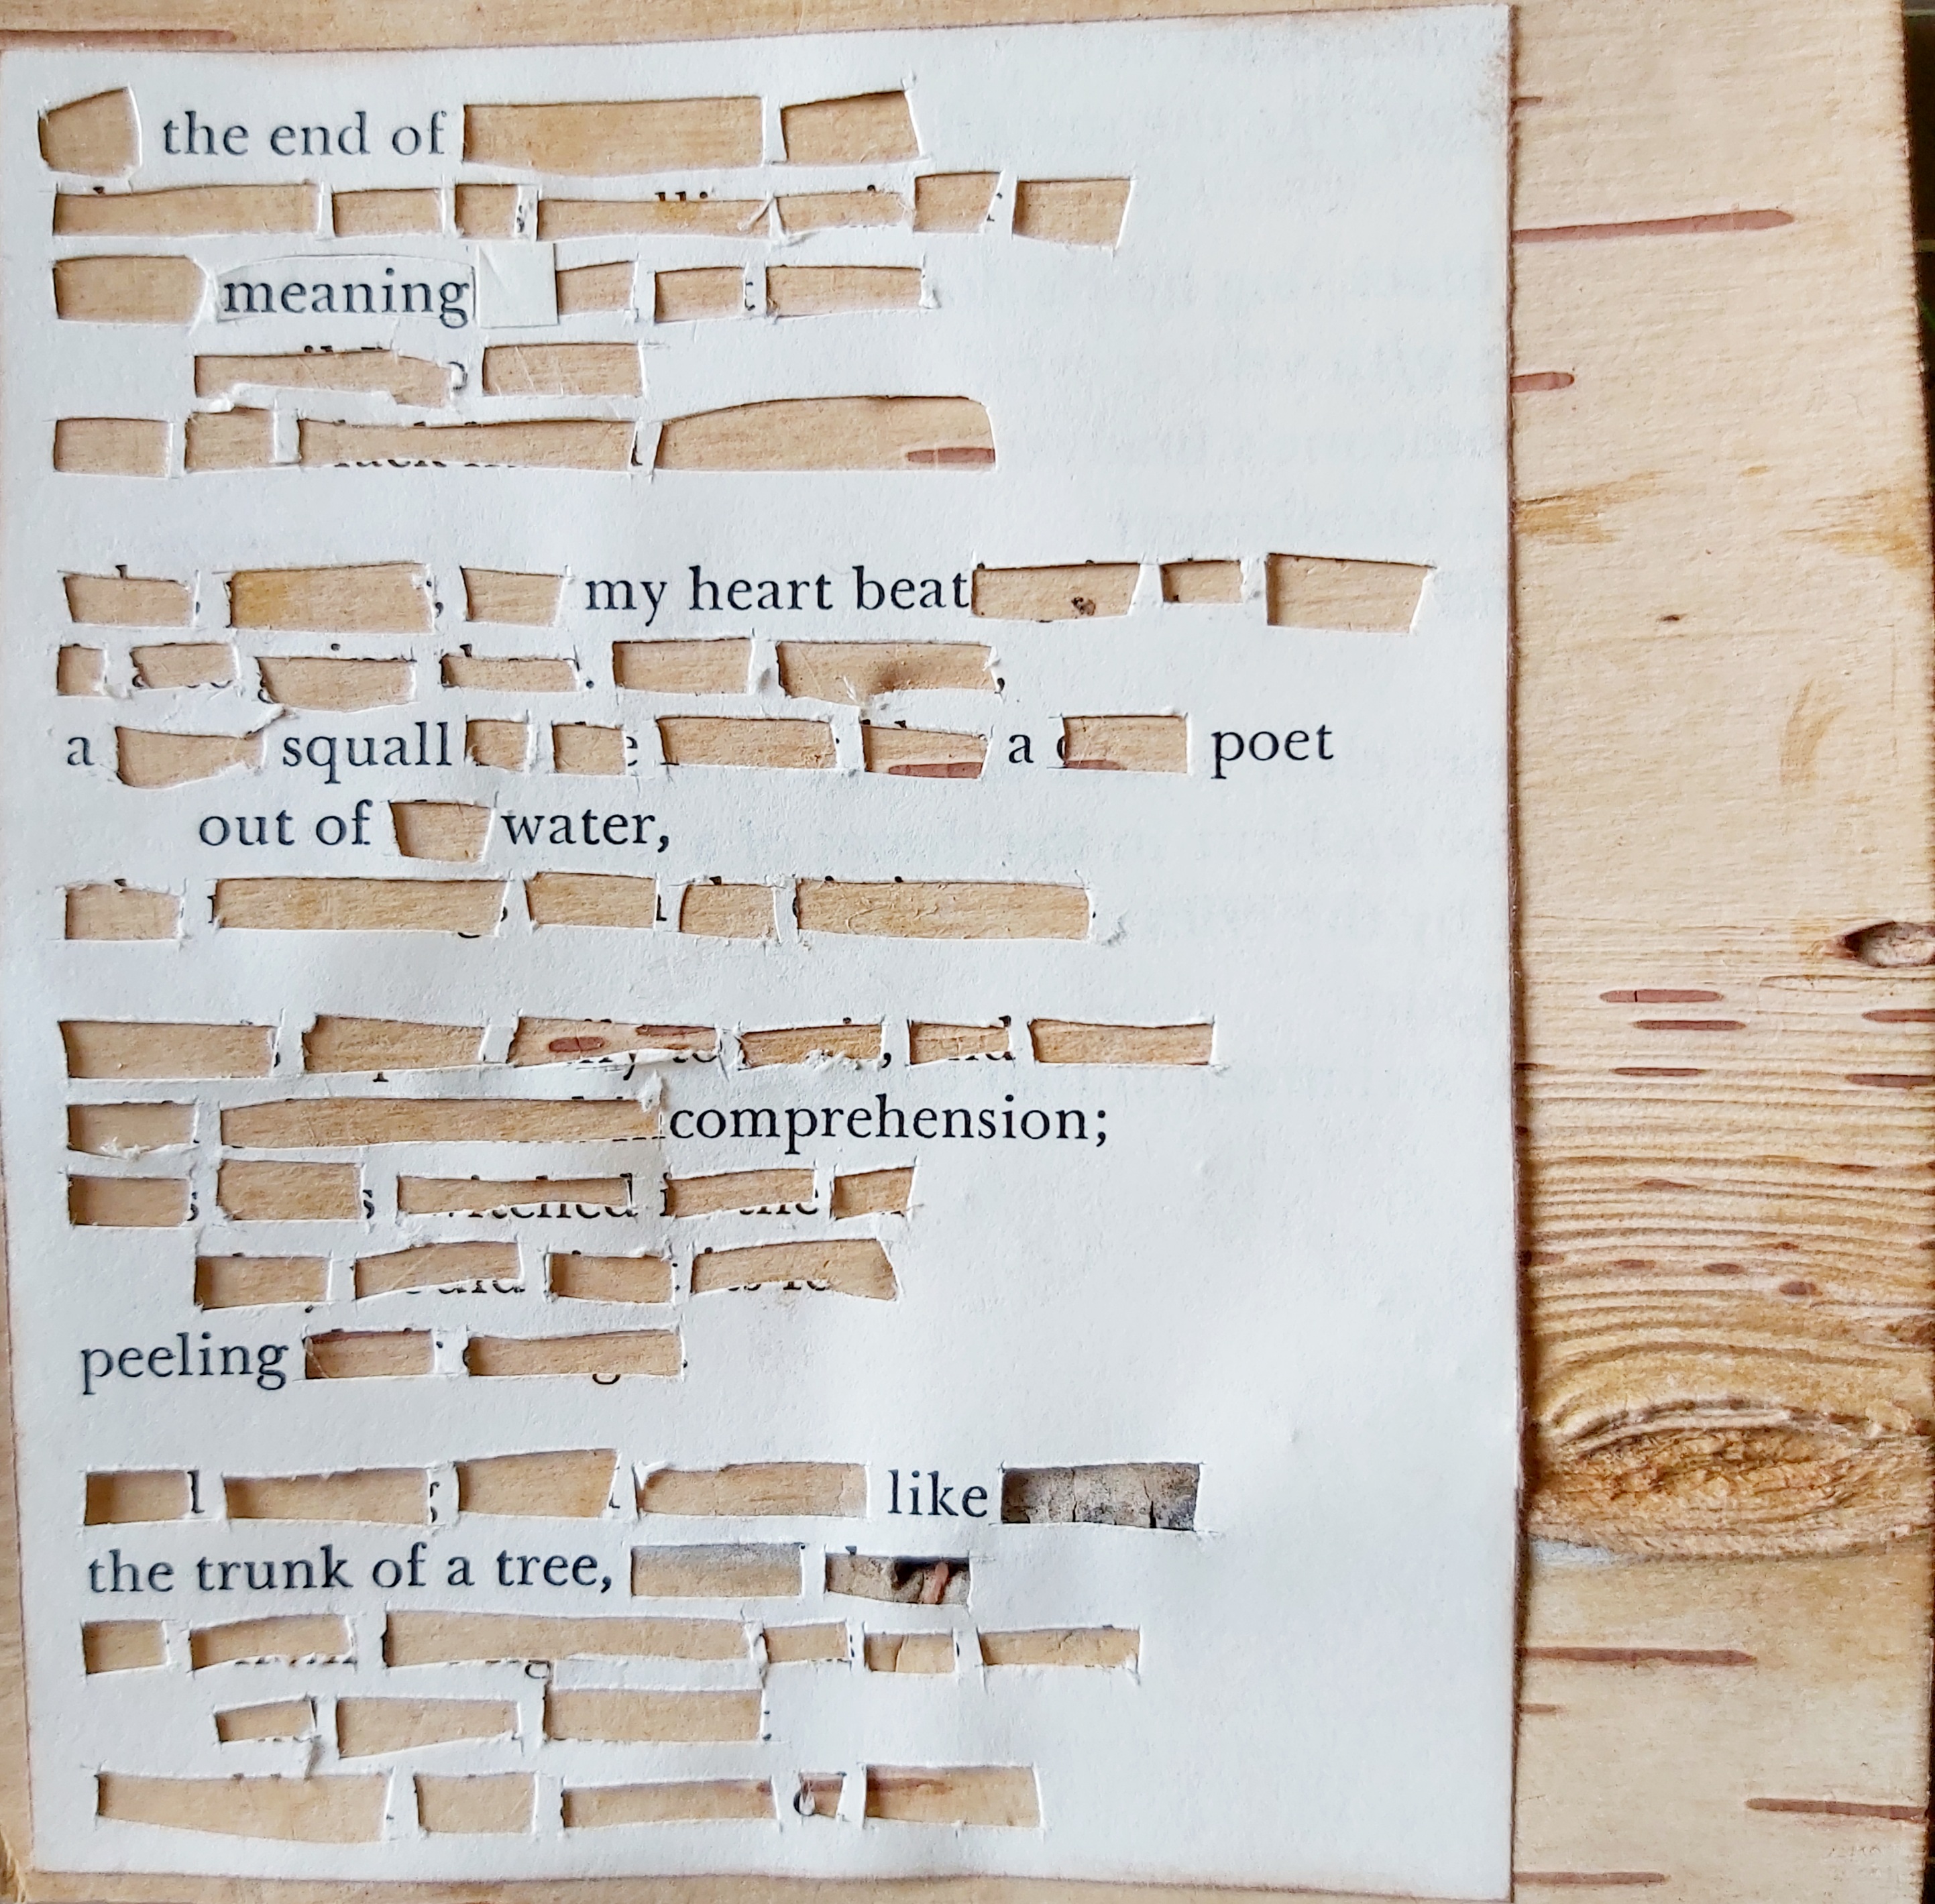 the end of
meaning
my heart beat
a squall a poet
out of water,
comprehension;
peeling
like
the trunk of a tree,